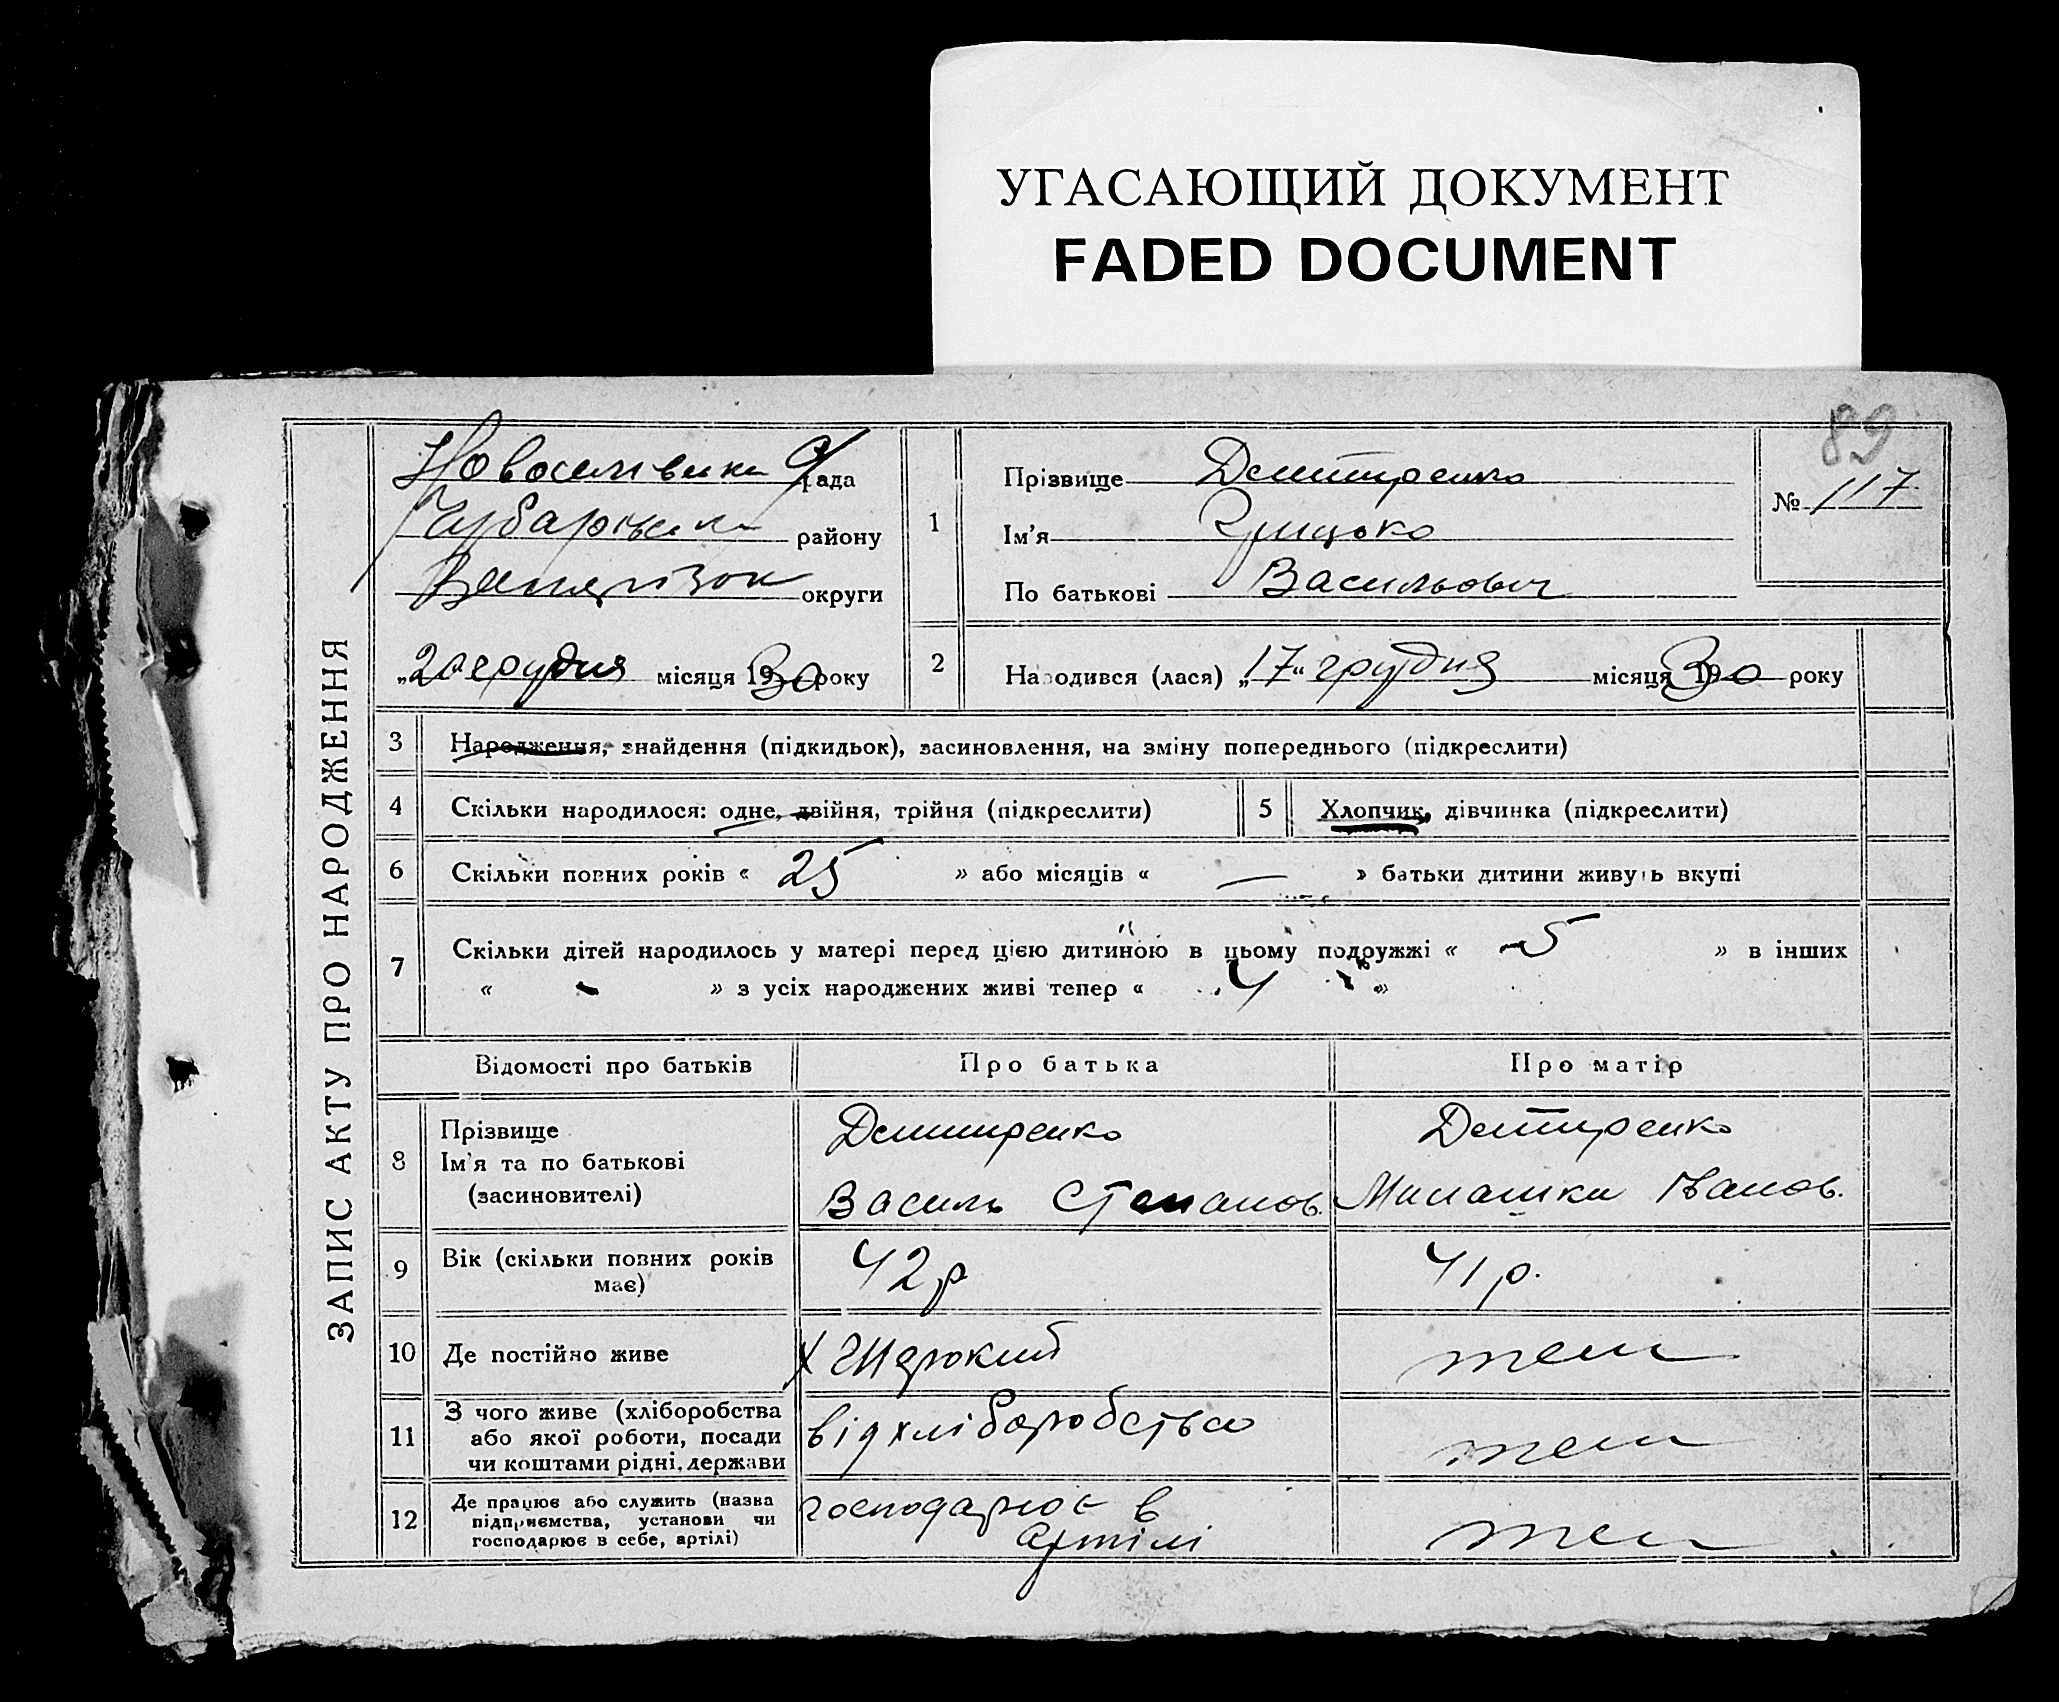 УГАСАЮЩИЙ ДОКУМЕНТ
FADED DOCUMENT
89
ЗАПИС АКТУ ПРО НАРОДЖЕННЯ
рада
району
округи
„20 грудня місяця 1930 року
1
Прізвище Дмитренко
Ім'я Грицько
По батькові Васильович
№ 117
2
Народився (лася) „17“ грудня місяця 1930 року
3 Народження, знайдення (підкидьок), засиновлення, на зміну попереднього (підкреслити)
4 Скільки народилося: одне, двійня, трійня (підкреслити)
5 Хлопчик, дівчинка (підкреслити)
6 Скільки повних років « 25 » або місяців « — » батьки дитини живуть вкупі
7 Скільки дітей народилось у матері перед цією дитиною в цьому подружжі « 5 » в інших
« - » з усіх народжених живі тепер « 4 »
Відомості про батьків Про батька Про матір
8 Прізвище
Ім'я та по батькові
(засиновителі)
Дмитренко
Василь Степанов.
Дмитренко
Іванов.
9 Вік (скільки повних років
має)
42 р
41 р.
10 Де постійно живе
х Широкий
теж
11 З чого живе (хліборобства
або якої роботи, посади
чи коштами рідні, держави
від хліборобства
теж
12 Де працює або служить (назва
підприємства, установи чи
господарює в себе, артілі)
господарює в
артілі
теж